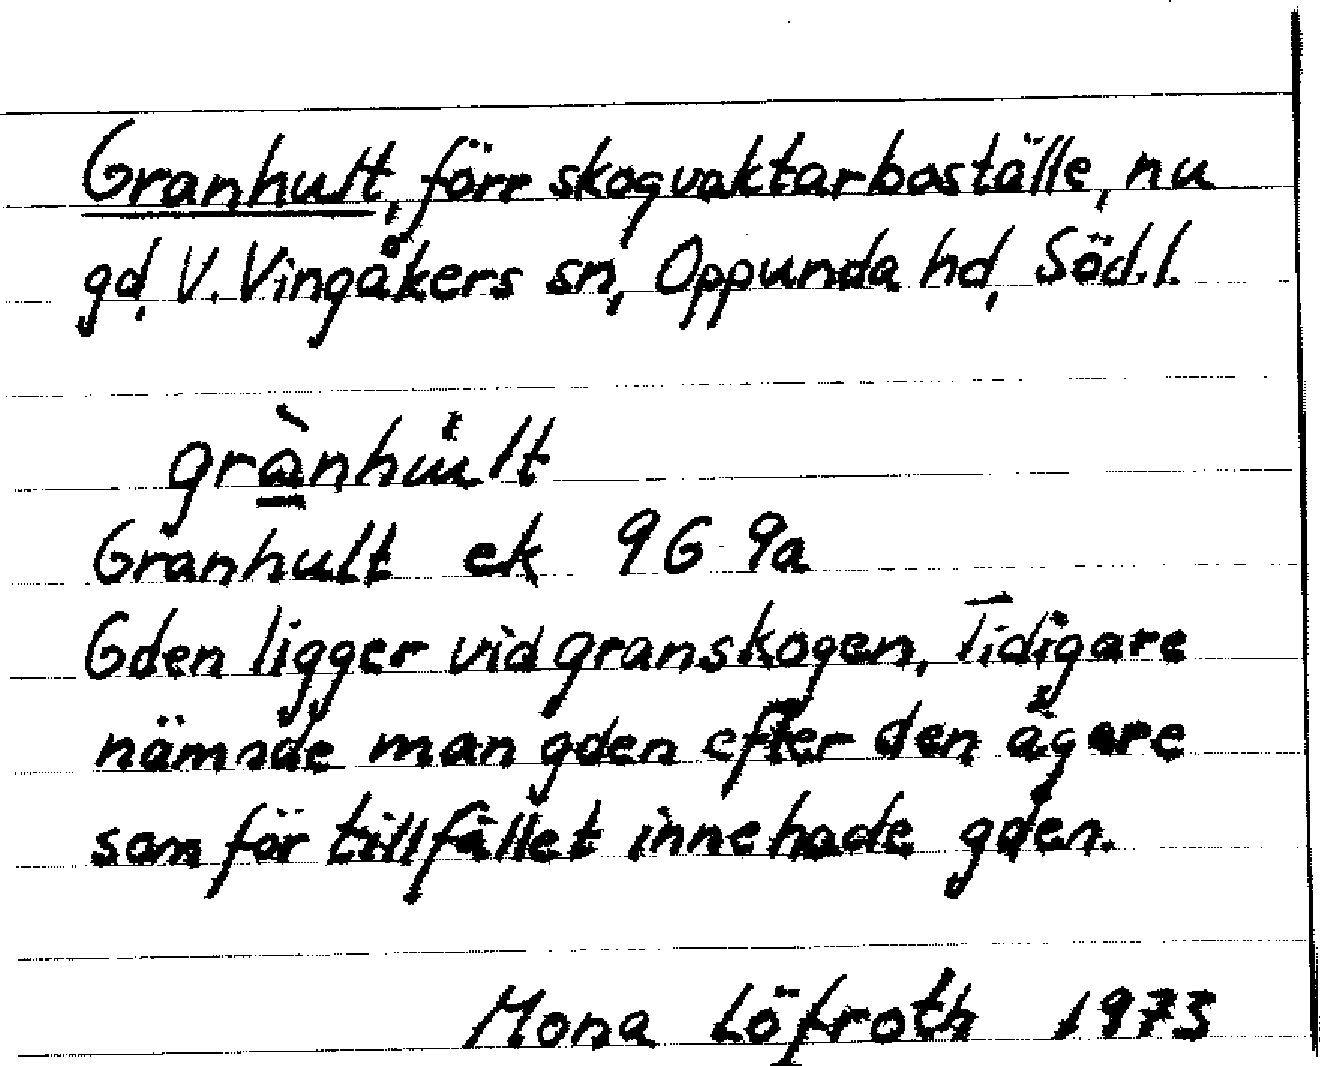 Granhult, förr skogvaktarboställe, nu
gd, V. Vingåkers sn, Oppunda hd, Söd.l.
grànhu̇lt
Granhult ek 9G 9a
Gden ligger vid granskogen. Tidigare
nämnde man gden efter den ägare
som för tillfället innehade gden.
Mona Löfroth 1973